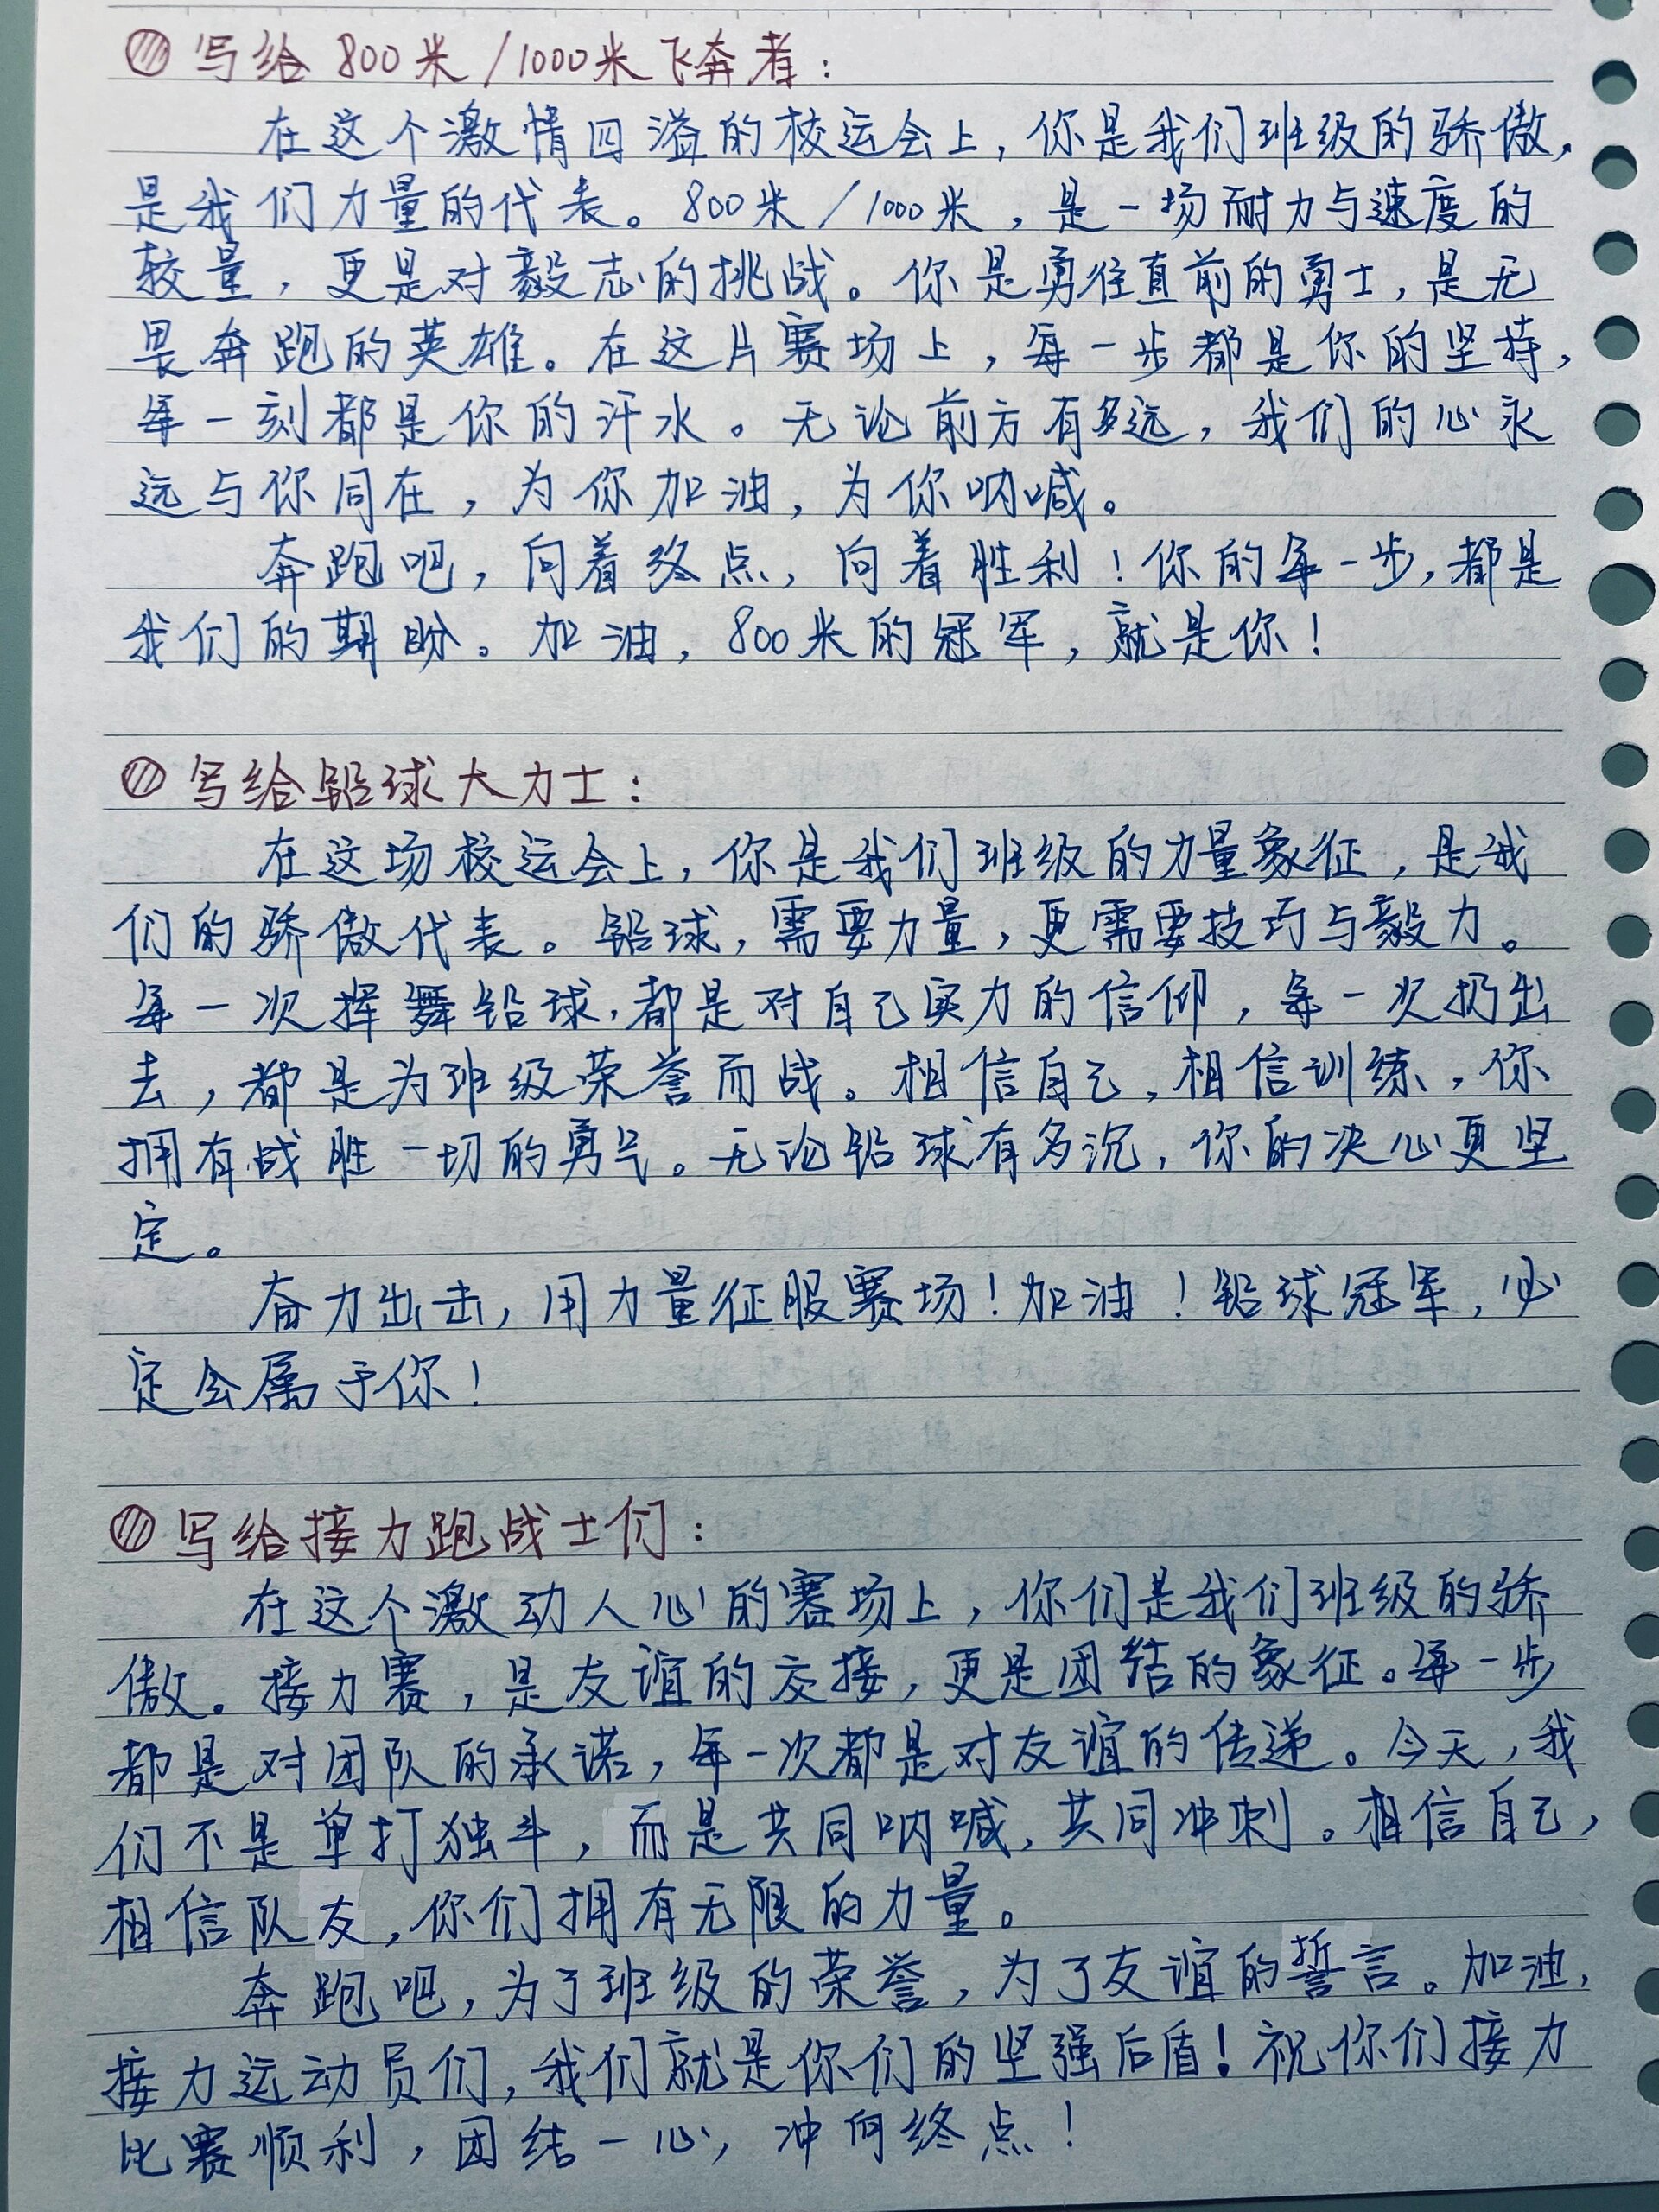 写给800米/1000米飞奔者：
在这个激情四溢的校运会上，你是我们班级的骄傲，
是我们力量的代表。800米/1000米，是一场耐力与速度的
较量，更是对毅志的挑战。你是勇往直前的勇士，是无
畏奔跑的英雄。在这片赛场上，每一步都是你的坚持，
每一刻都是你的汗水。无论前方有多远，我们的心永
远与你同在，为你加油，为你呐喊。
奔跑吧，向着终点，向着胜利！你的每一步，都是
我们的期盼。加油，800米的冠军，就是你！
写给铅球大力士：
在这场校运会上，你是我们班级的力量象征，是我
们的骄傲代表。铅球，需要力量，更需要技巧与毅力。
每一次挥舞铅球，都是对自己实力的信仰，每一次扔出
去，都是为班级荣誉而战。相信自己，相信训练，你
拥有战胜一切的勇气。无论铅球有多沉，你的决心更坚
定。
奋力出击，用力量征服赛场！加油！铅球冠军，必
定会属于你！
写给接力跑战士们：
在这个激动人心的赛场上，你们是我们班级的骄
傲。接力赛，是友谊的交接，更是团结的象征。每一步
都是对团队的承诺，每一次都是对友谊的传递。今天，我
们不是单打独斗，而是共同呐喊，共同冲刺。相信自己，
相信队友，你们拥有无限的力量。
奔跑吧，为了班级的荣誉，为了友谊的誓言。加油，
接力运动员们，我们就是你们的坚强后盾！祝你们接力
比赛顺利，团结一心，冲向终点！